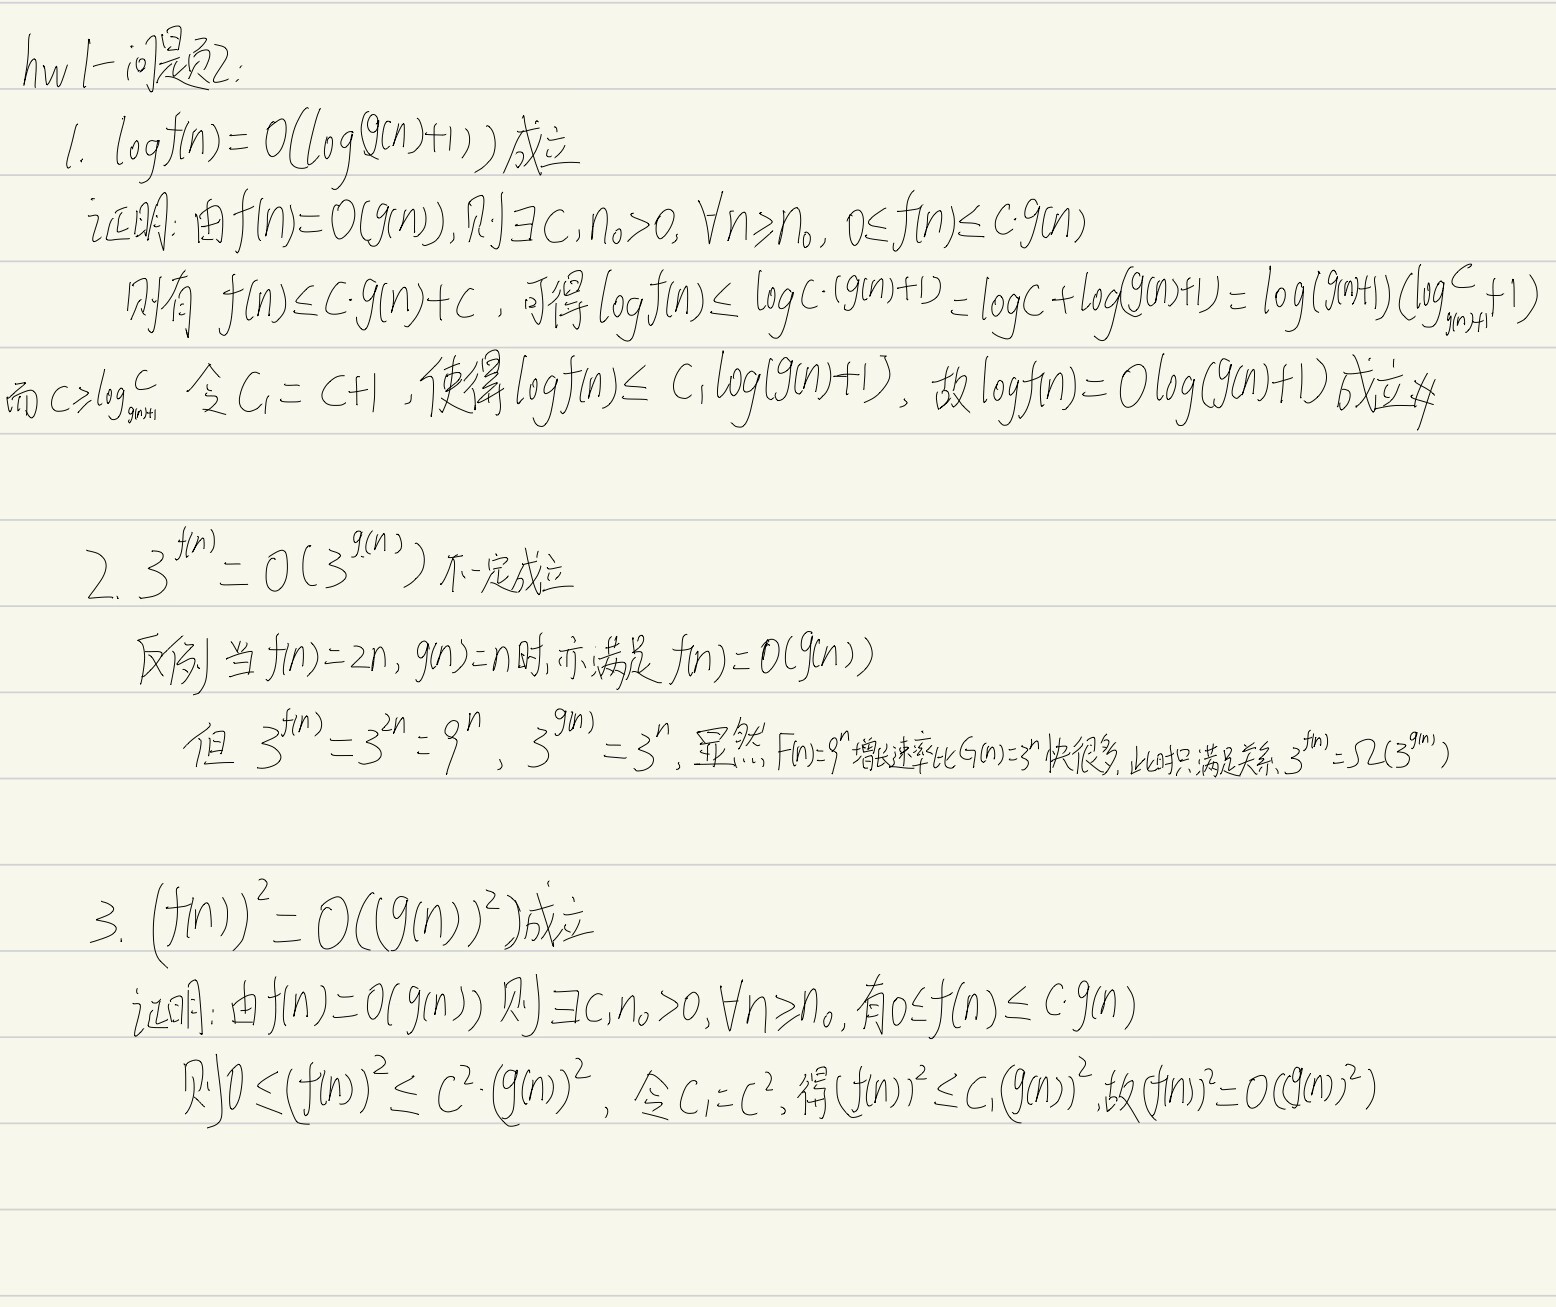 hw1-问题2:
1. logf(n)=O(log(g(n)+1))成立
证明:由f(n)=O(g(n)),则∃c,n₀>0,∀n≥n₀, 0≤f(n)≤c·g(n)
则有 f(n)≤c·g(n)+c,可得logf(n)≤logc·(g(n)+1)=logc+log(g(n)+1)=log(g(n)+1)(log_{g(n)+1}^{c}+1)
而c≥log_{g(n)+1}^{c} 令c₁=c+1,使得logf(n)≤c₁log(g(n)+1),故logf(n)=Olog(g(n)+1)成立#
2. 3^{f(n)}=O(3^{g(n)})不一定成立
反例当f(n)=2n,g(n)=n时,亦满足f(n)=O(g(n))
但 3^{f(n)}=3^{2n}=9^n, 3^{g(n)}=3^n,显然F(n)=9^n增长速率比G(n)=3^n快很多,此时只满足关系3^{f(n)}=Ω(3^{g(n)})
3. (f(n))²=O((g(n))²)成立
证明:由f(n)=O(g(n))则∃c,n₀>0,∀n≥n₀,有0≤f(n)≤c·g(n)
则0≤(f(n))²≤c²·(g(n))²,令c₁=c²,得(f(n))²≤c₁(g(n))²,故(f(n))²=O((g(n))²)